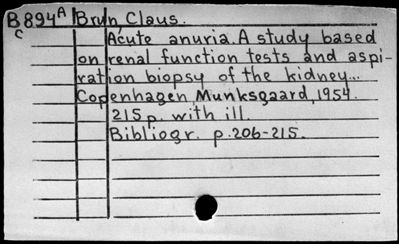 B894A Brun, Claus.
c Acute anuria. A study based
on renal function tests and aspi-
ration biopsy of the kidney...
Copenhagen, Munksgaard, 1954.
215 p. with ill.
Bibliogr. p. 206-215.